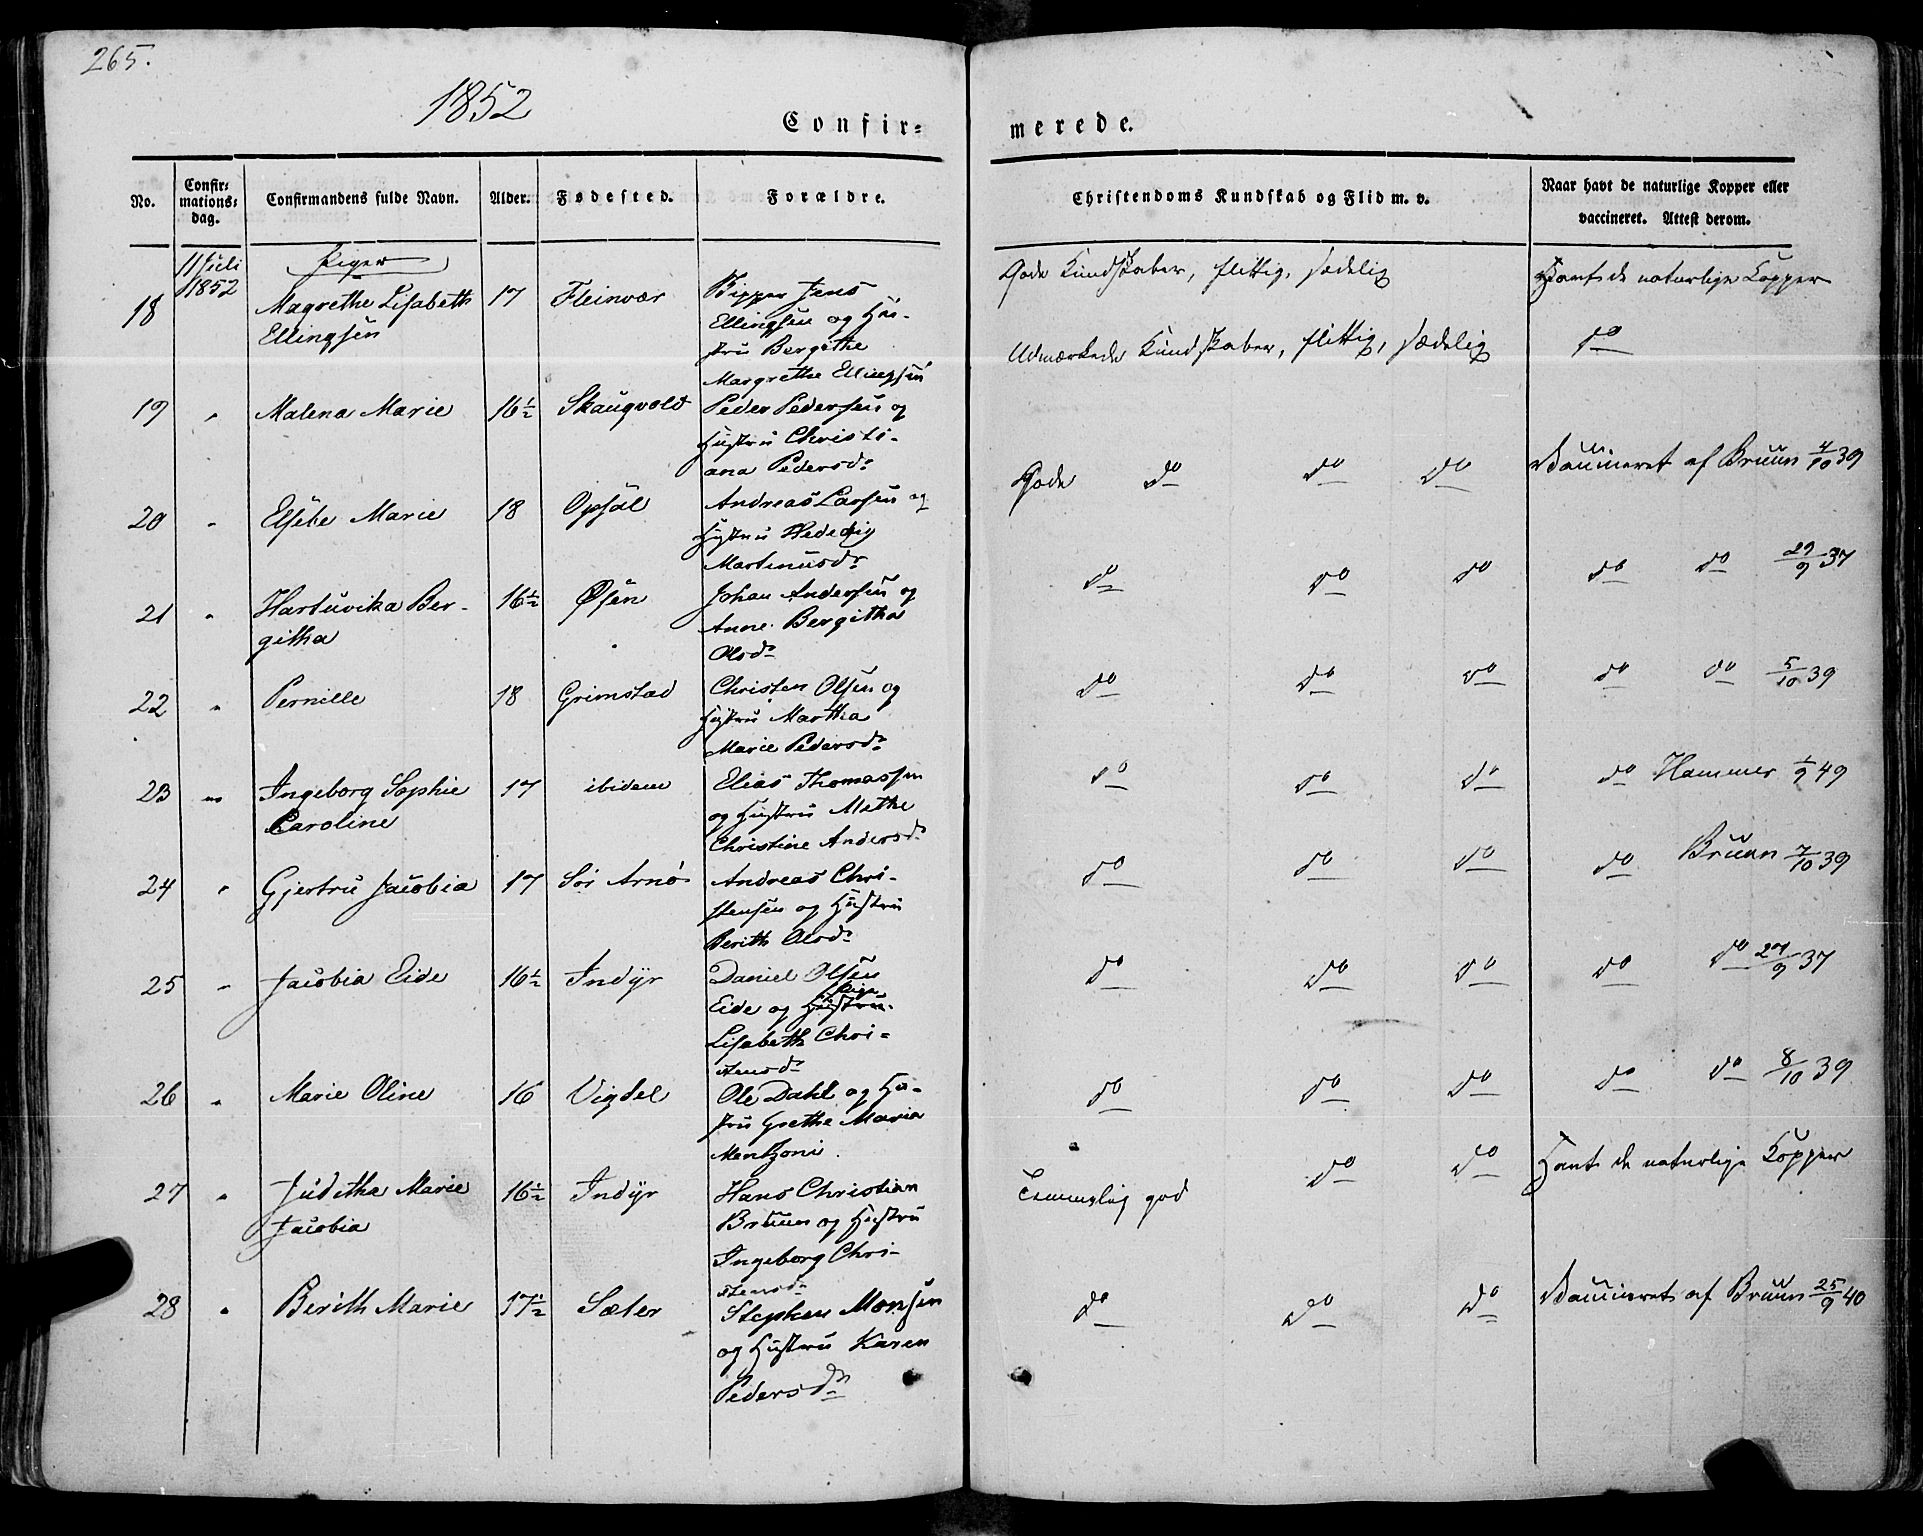 265.
1852
Confir-
merede.
No.
Confir-
mations-
dag.
Confirmandens fulde Navn.
Alder.
Fødested.
Forældre.
Christendoms Kundskab og Flid m. v.
Naar havt de naturlige Kopper eller
vaccineret. Attest derom.
11 Juli
1852
Piger
18 Magrethe Lisabeth 17 Fleinvær
Ellingsen
Jens
Ellingsen og Hu-
stru Bergithe
Margrethe Ellingsen
Gode Kundskaber, flittig, sædelig
Havt de naturlige Kopper
19 " Malena Marie 16½ Skaugvold
Peder Pedersen og
Hustru Christi-
ana Pedersd.
Udmærkede Kundskaber, flittig, sædelig
do
20 " Elsebe Marie 18 Opsal
Andreas Larsen og
Hustru Hedevig
Martinusd.
Gode do do do
Vaccineret af Bruun 4/10 39
21 " Hartuvika Ber-
githa
16½ Øsen
Johan Andersen og
Anne Bergitha
Olsd.
do do do do do 29/9 37
22 " Pernille 18 Grimstad
Christen Olsen og
Hustru Martha
Marie Pedersd.
do do do do do 5/10 39
23 " Ingeborg Sophie
Caroline
17 ibidem
Elias Thomassen
og Hustru Methe
Christine Andersd.
do do do do Hammer 1/9 49
24 " Gjertru Jacobia 17 Sør Arnø
Andreas Chri-
stensen og Hustru
Berith Olsd.
do do do do Bruun 7/10 39
25 " Jacobia Eide 16½ Indyr
Daniel Olsen
Eide og Pige
Hustru
Lisabeth Chri-
stensd.
do do do do do 27/9 37
26 " Marie Oline 16 Vigdel
Ole Dahl og Hu-
stru Grethe Maria
Mentzoni.
do do do do do 8/10 39
27 " Juditha Marie
Jacobia
16½ Indyr
Hans Christian
Bruun og Hustru
Ingeborg Chri-
stensd.
Temmelig god do do
Havt de naturlige Kopper
28 " Berith Marie 17½ Sæter
Stephen Monsen
og Hustru Karen
Pedersd.
do do do
Vaccineret af Bruun 25/9 40